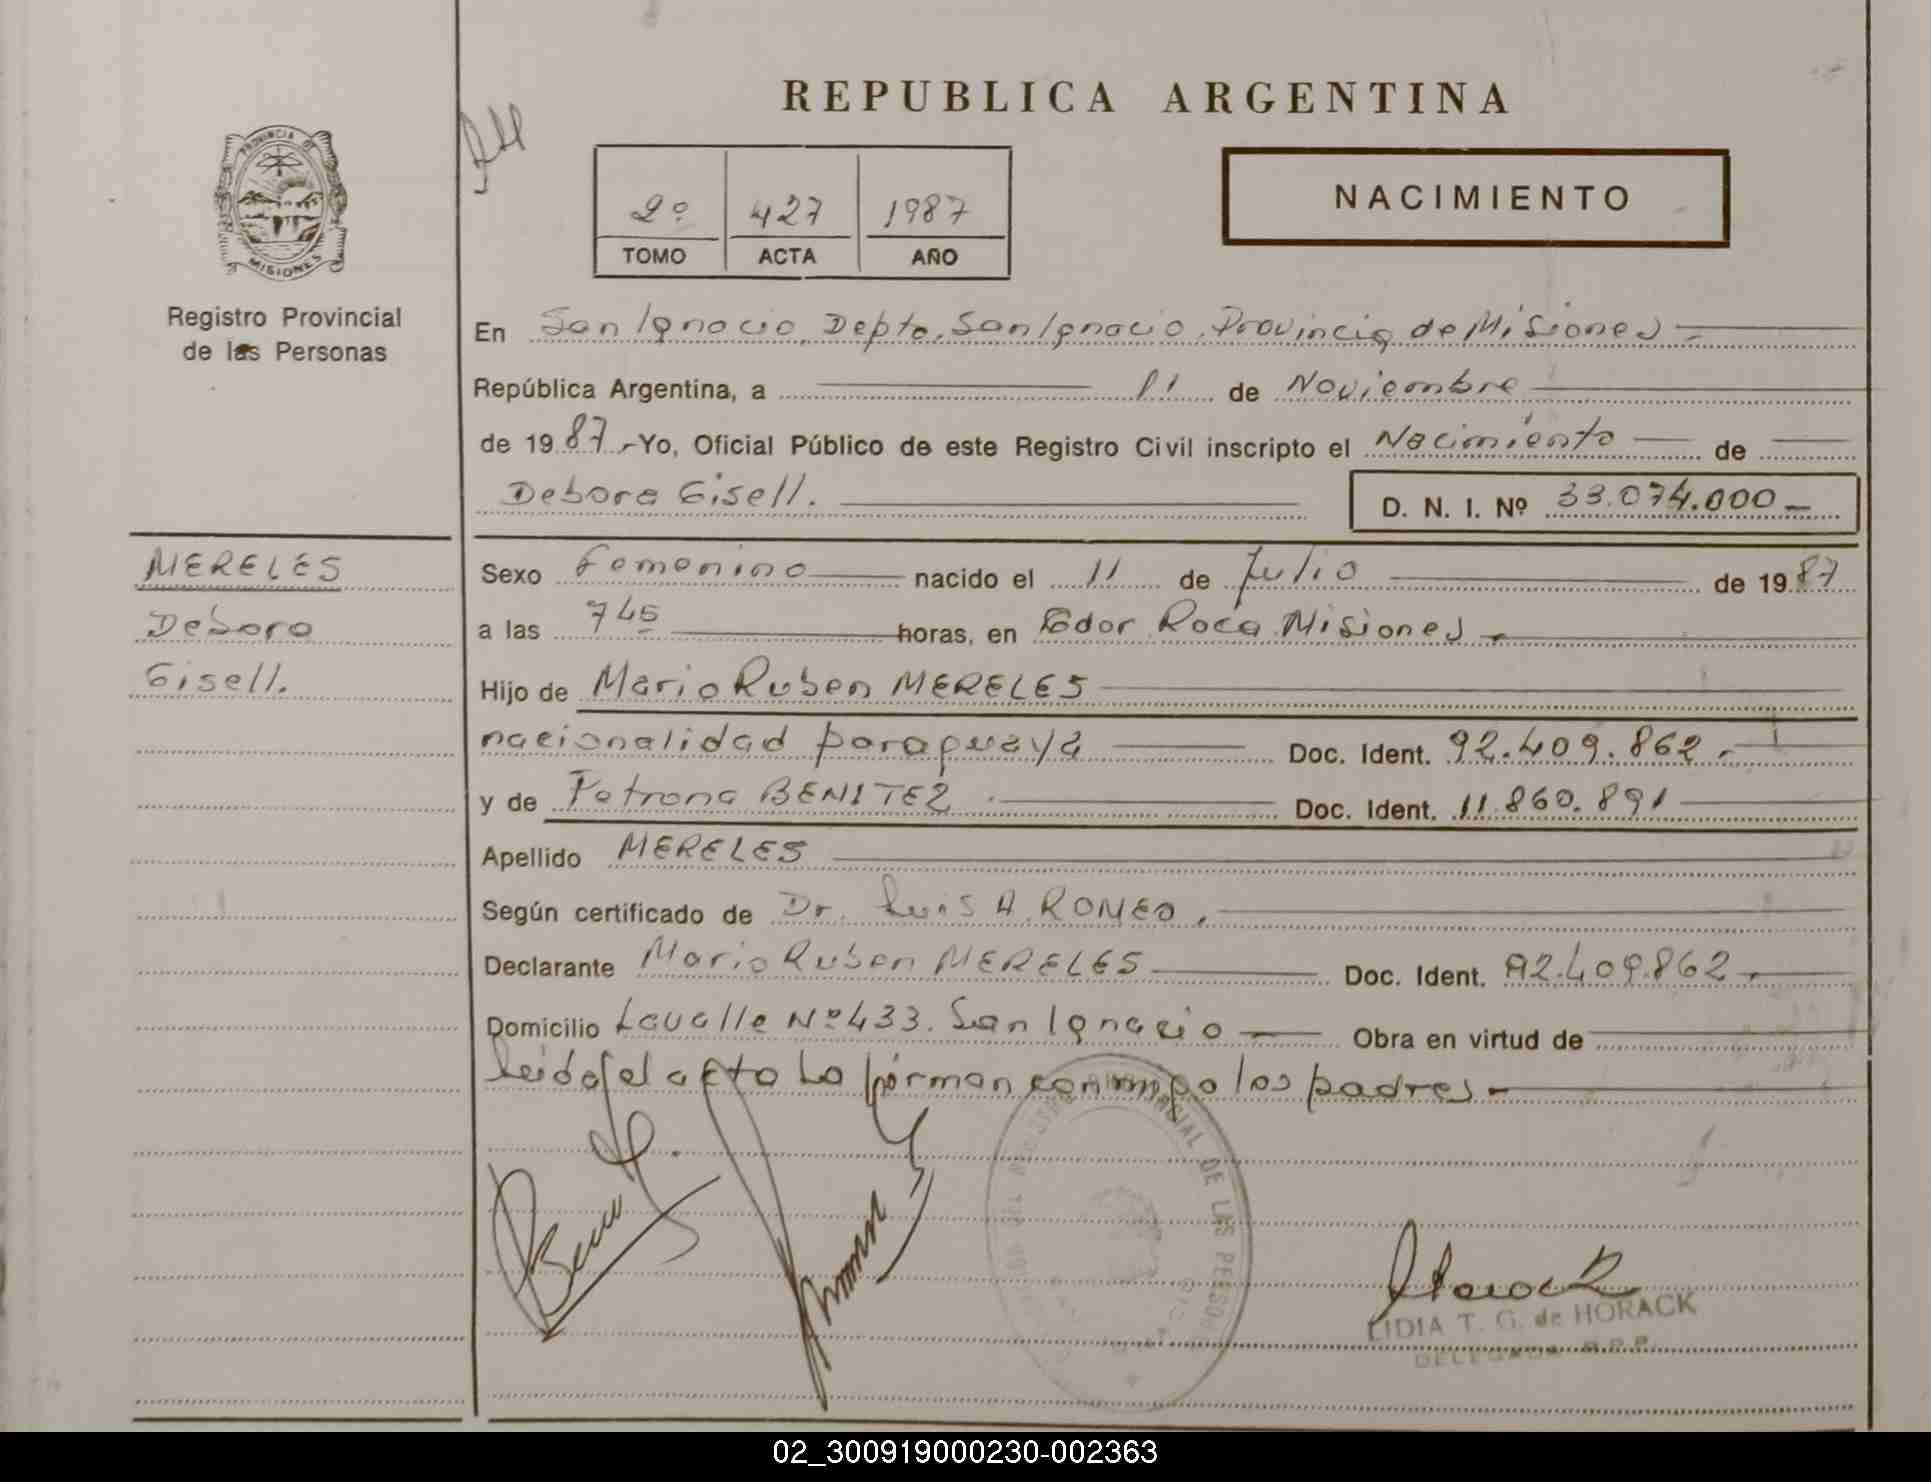 REPUBLICA ARGENTINA
PROVINCIA DE
MISIONES
Registro Provincial
de las Personas
2º 427 1987
TOMO ACTA AÑO
NACIMIENTO
En San Ignacio, Depto. San Ignacio, Provincia de Misiones
República Argentina, a 11 de Noviembre
de 1987.- Yo, Oficial Público de este Registro Civil inscripto el Nacimiento de
Debora Gisell.
D. N. I. Nº 33.074.000-
MERELES
Debora
Gisell.
Sexo Femenino nacido el 11 de Julio de 1987
a las 745 horas, en Gdor Roca Misiones
Hijo de Mario Ruben MERELES
nacionalidad paraguaya Doc. Ident. 92.409.862.-
y de Petrona BENITEZ Doc. Ident. 11.860.891
Apellido MERELES
Según certificado de Dr. Luis A. ROMEO.
Declarante Mario Ruben MERELES Doc. Ident. 92.409.862.-
Domicilio Lavalle Nº 433. San Ignacio Obra en virtud de
leida el acta la firman conmigo los padres-
Horack
LIDIA T. G. de HORACK
DELEGADA R.P.P.
02_300919000230-002363